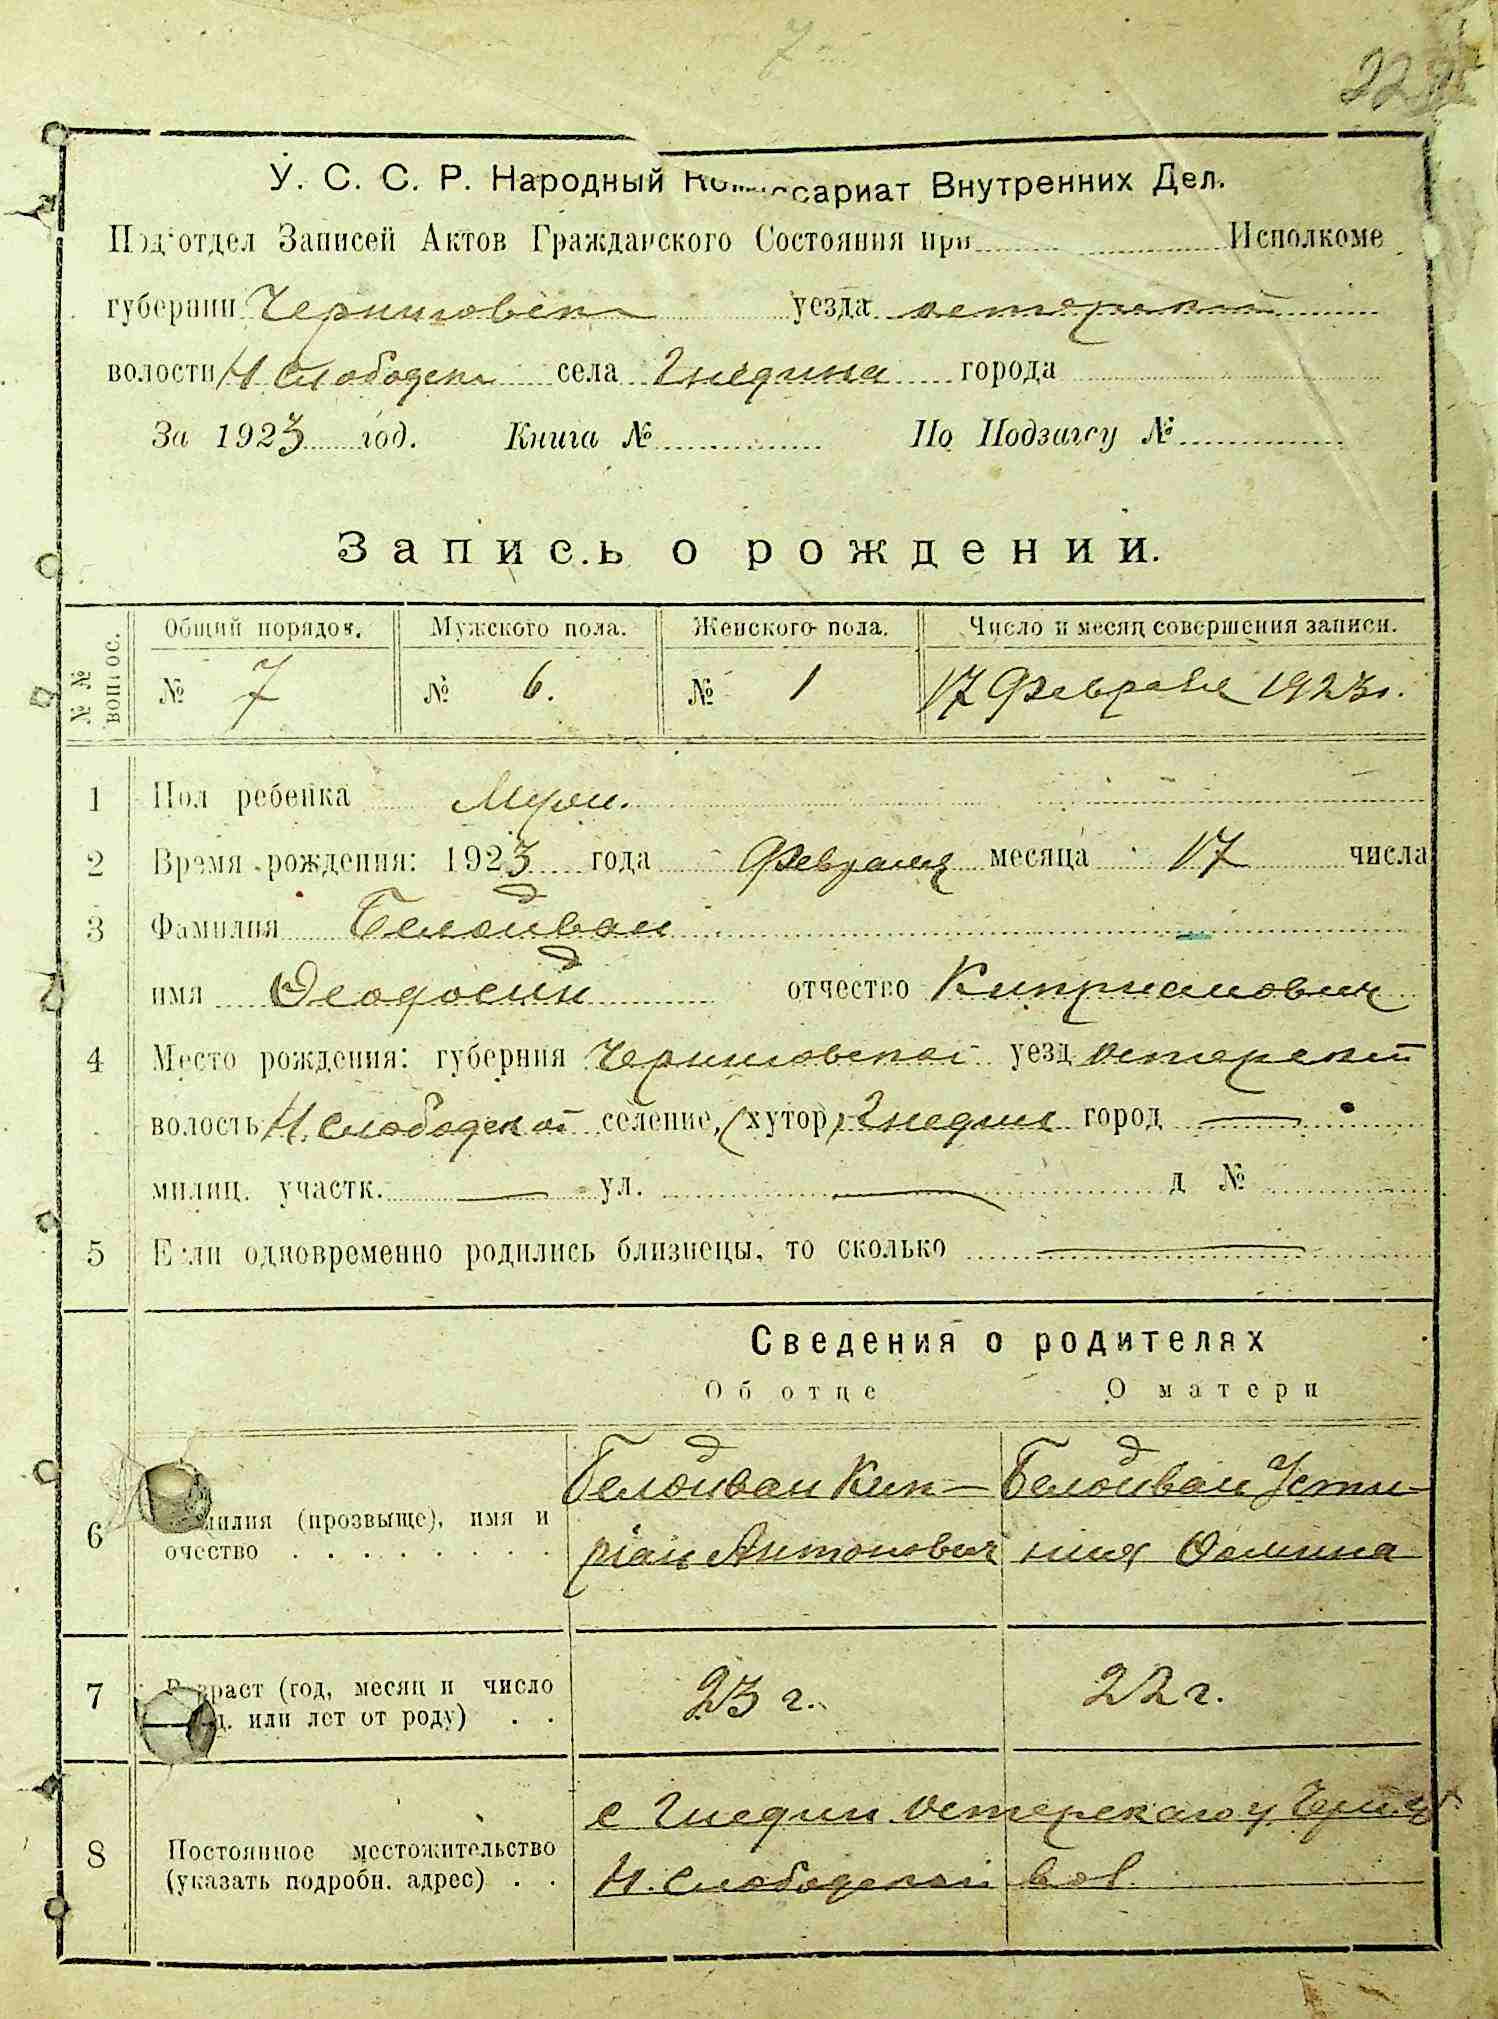 7
У. С. С. Р. Народный Комиссариат Внутренних Дел.
Подотдел Записей Актов Гражданского Состояния при Исполкоме
губернии Черниговск уезда остерский
волости Н Слободск села Гнедина города
За 1923 год. Книга № По Подзагсу №
Запись о рождении.
№ № вопрос. Общий порядок. Мужского пола. Женского пола. Число и месяц совершения записи.
№ 7 № 6. № 1 17 Февраля 1923 г.
1 Пол ребенка Муж.
2 Время рождения: 1923 года Февраля месяца 17 числа
3 Фамилия Белойван
имя Феодосий отчество Киприанович
4 Место рождения: губерния Черниговской уезд остерский
волость Н. Слободской селение, (хутор) Гнедин город —
милиц. участк. — ул. — д №
5 Если одновременно родились близнецы, то сколько —
Сведения о родителях
Об отце О матери
Белойван Кип- Белойван Усти-
6 милия (прозвыще), имя и
очество ріан Антонович ния Фомина
7 Возраст (год, месяц и число
или лет от роду) 23 г. 22 г.
с Гнедин Остерского у. Черниг
8 Постоянное местожительство
(указать подробн. адрес) Н. Слободской вол.